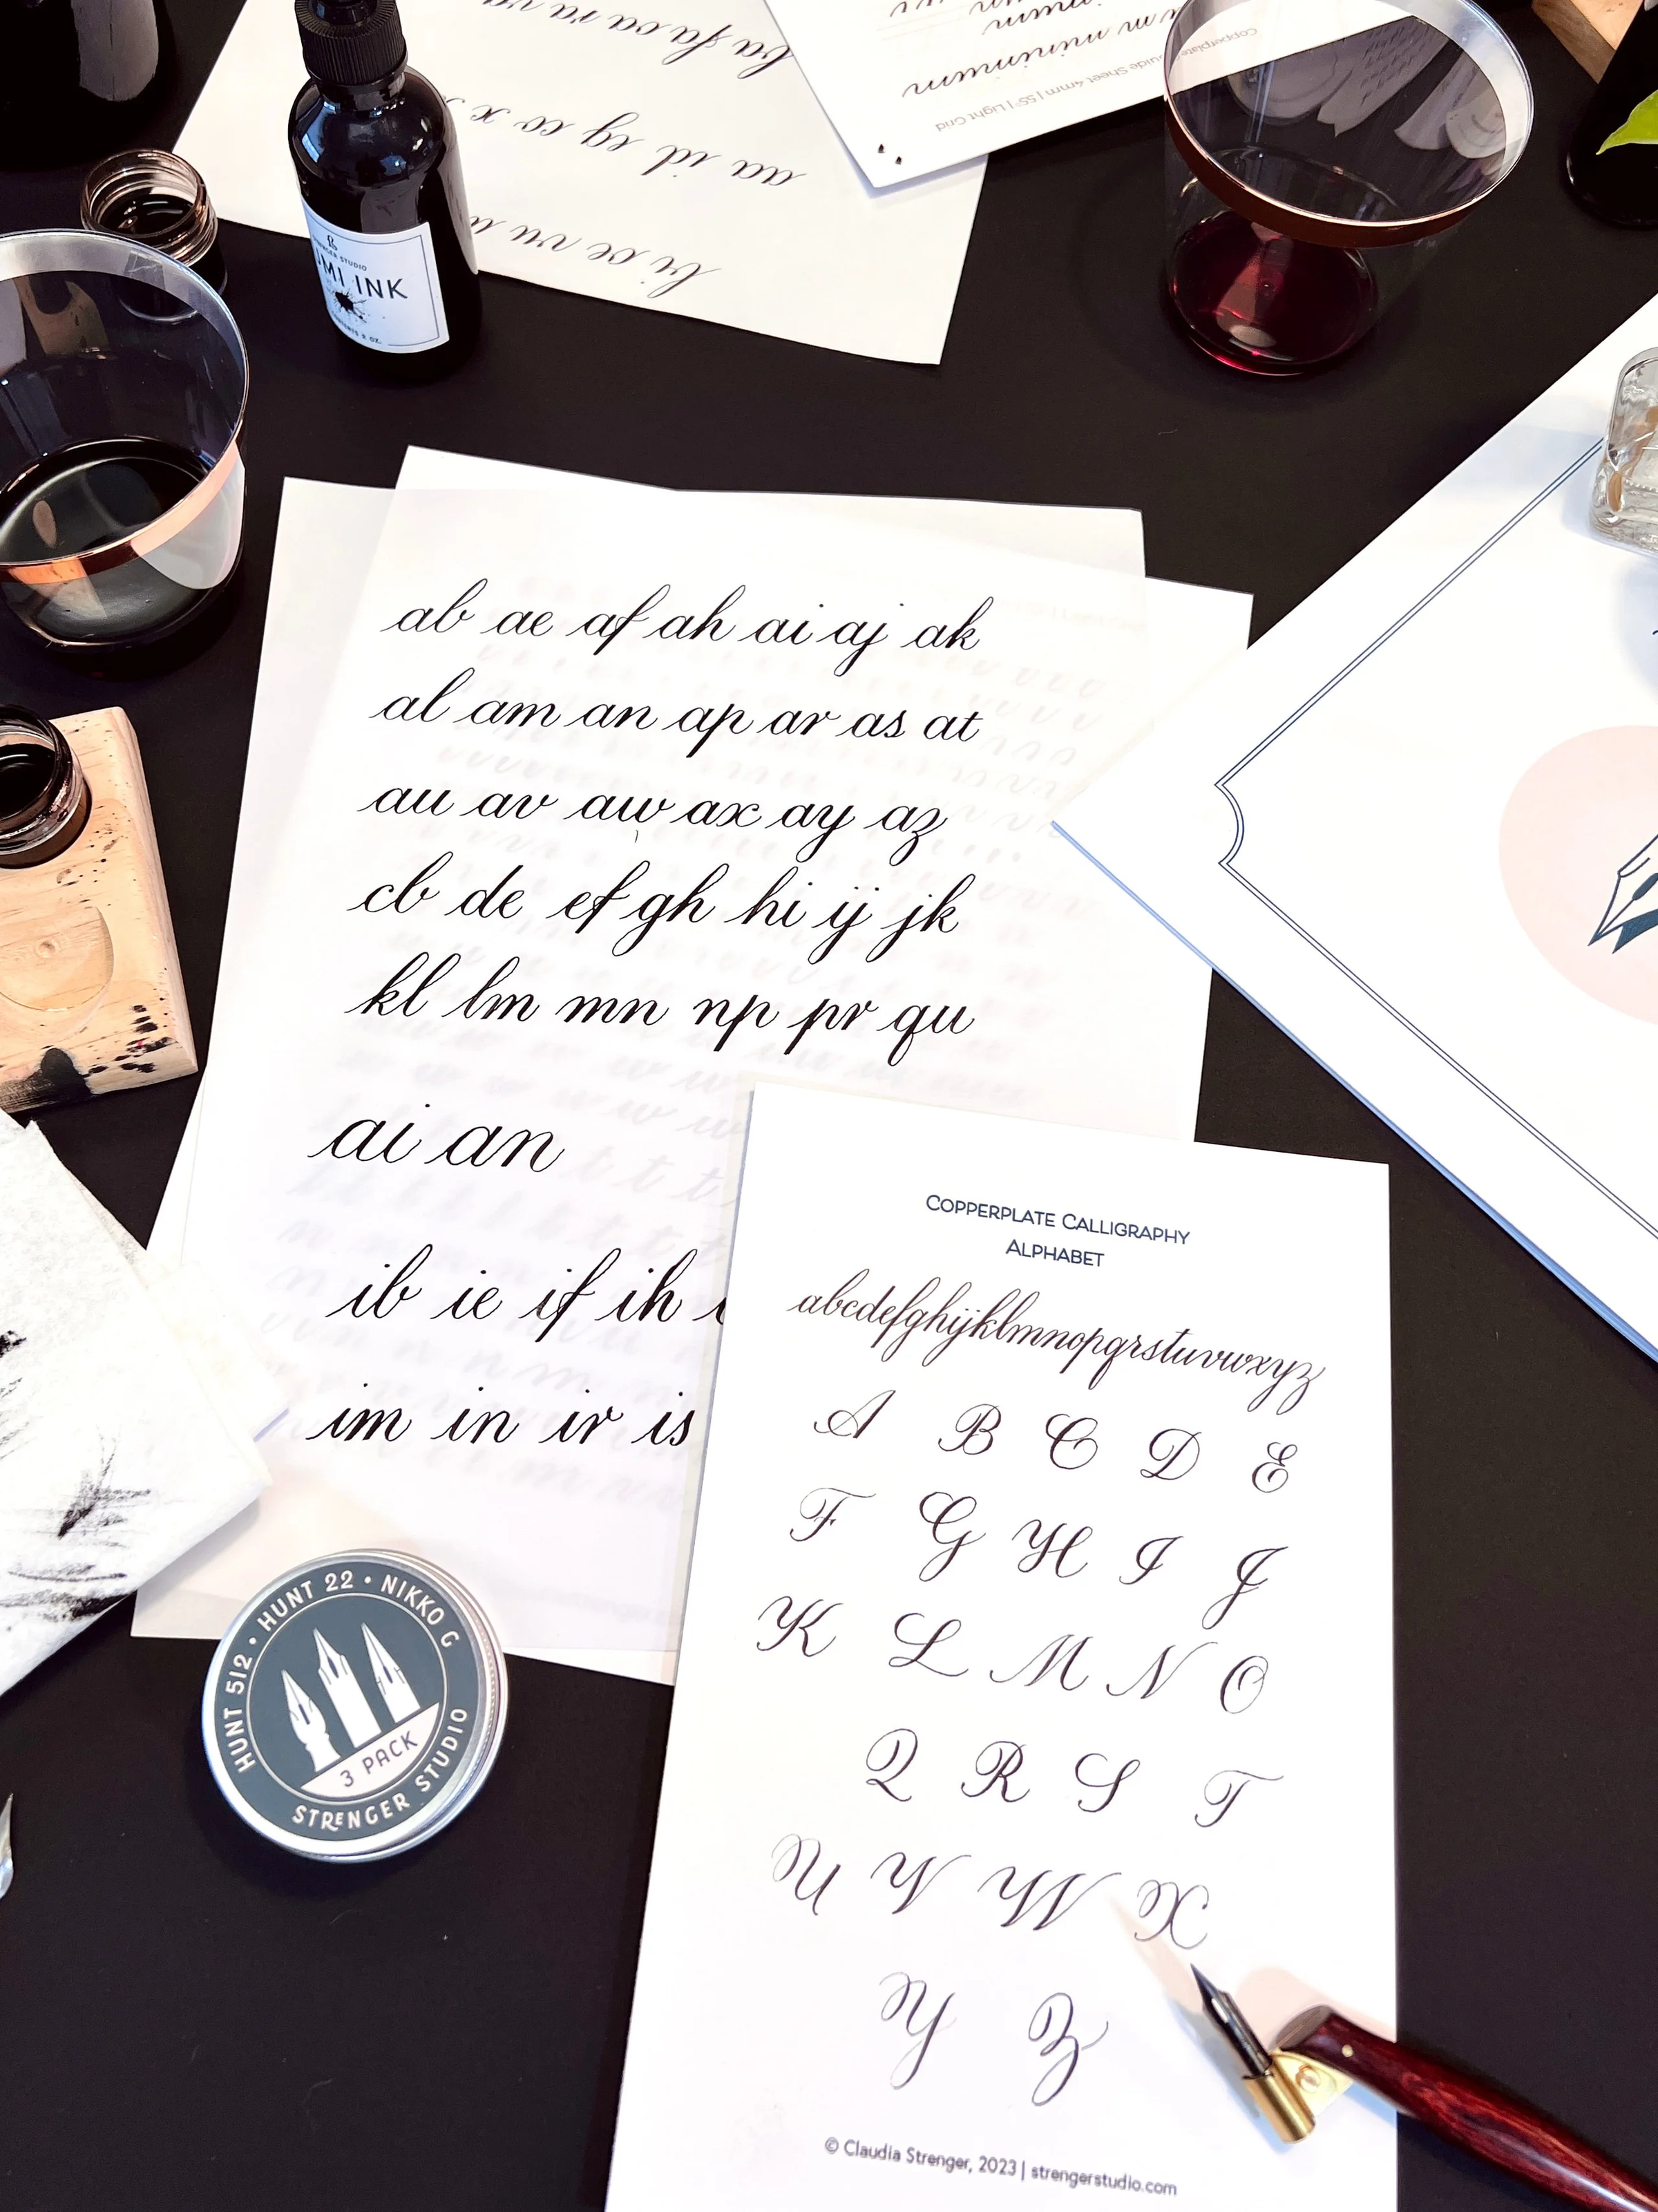 minimum
Sheet 4mm | 55° | Light Grid
aa id eg co x
INK
ab ae af ah ai aj ak
al am an ap ar as at
au av aw ax ay az
cb de ef gh hi ij jk
kl lm mn np pr qu
ai an
ib ie if ih
im in ir is
COPPERPLATE CALLIGRAPHY
ALPHABET
abcdefghijklmnopqrstuvwxyz
A B C D E
F G H I J
K L M N O
Q R S T
U V W X
Y Z
© Claudia Strenger, 2023 | strengerstudio.com
HUNT 512 • HUNT 22 • NIKKO G
3 PACK
STRENGER STUDIO